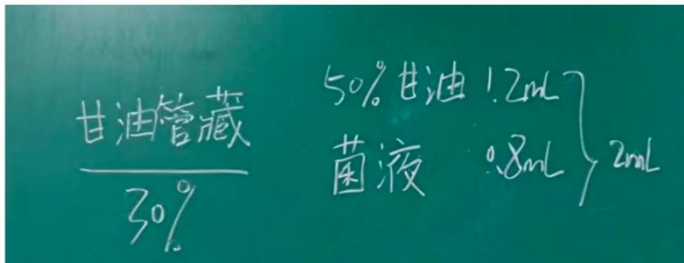 甘油管藏
30%
50%甘油 1.2mL
菌液 0.8mL
2mL